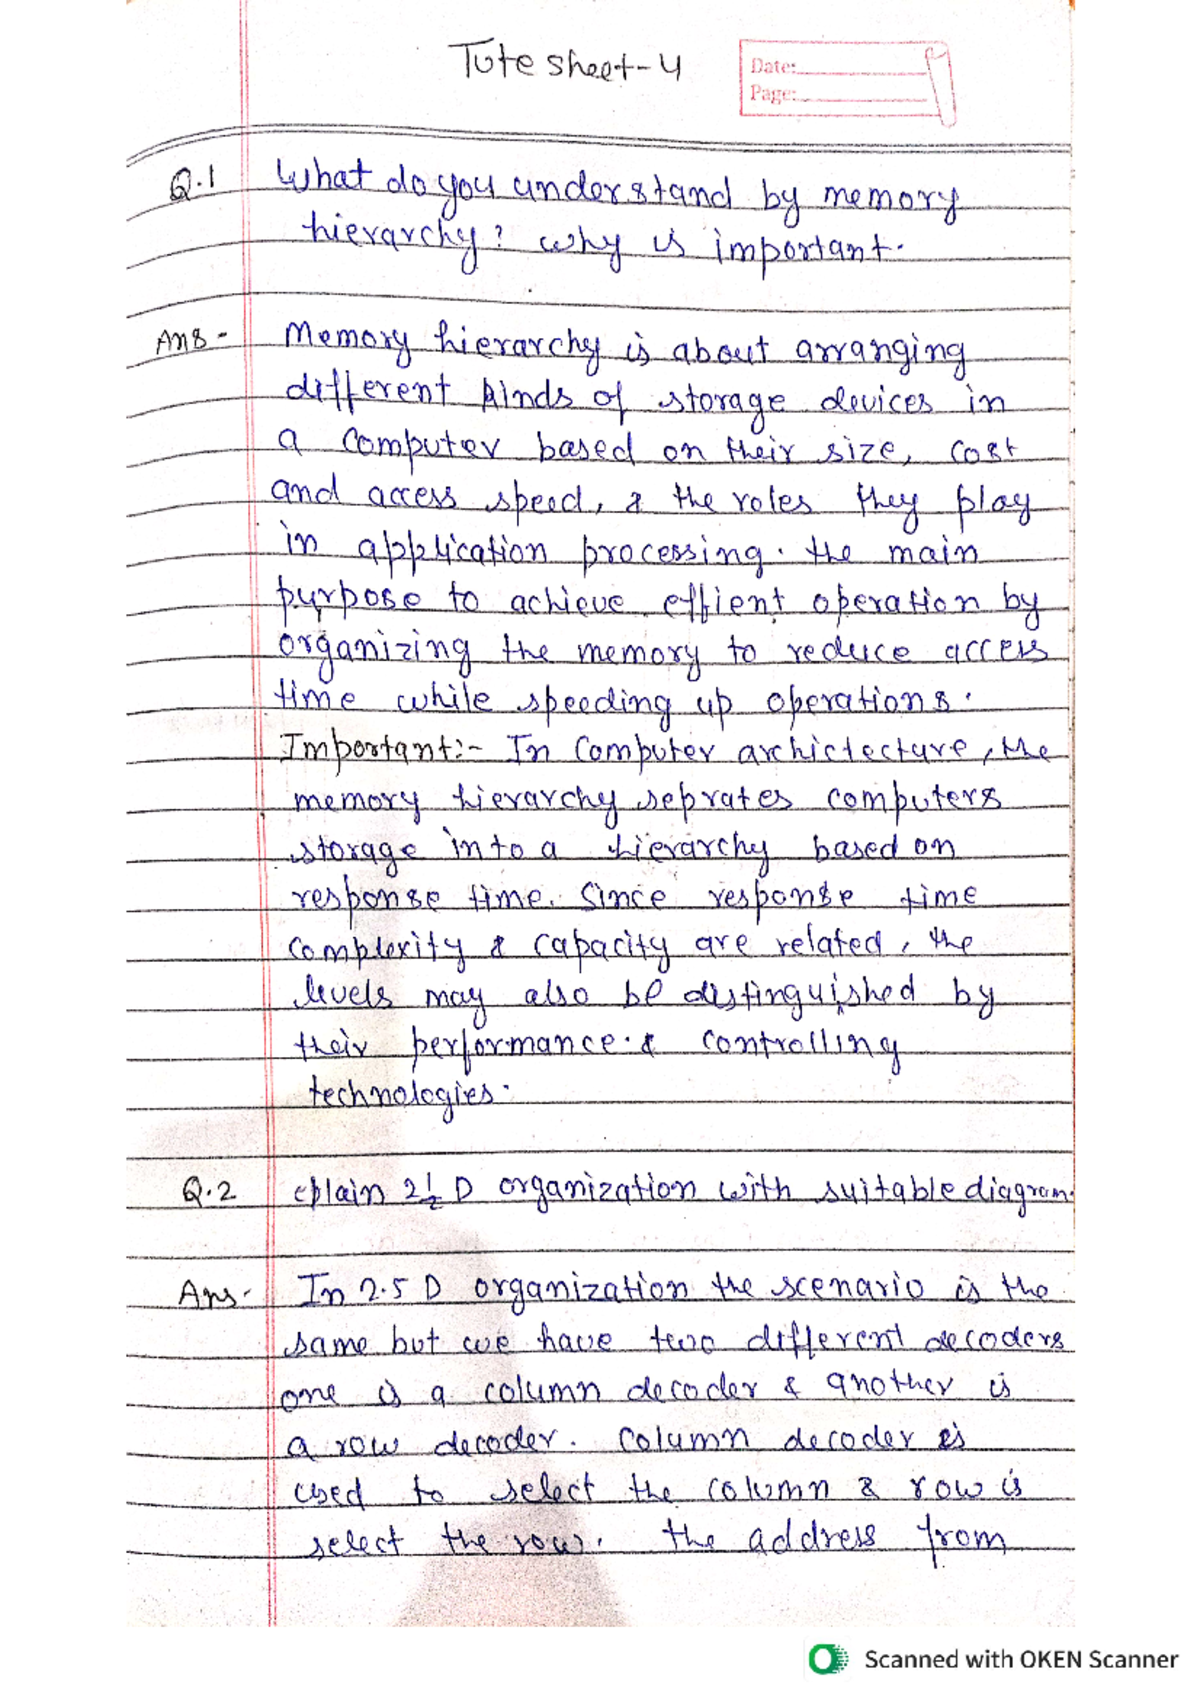 Tute sheet-4
Date:
Page:
Q.1 What do you understand by memory
hierarchy? why is important.
Ans - Memory hierarchy is about arranging
different kinds of storage devices in
a computer based on their size, cost
and access speed, & the roles they play
in application processing. the main
purpose to achieve effient operation by
organizing the memory to reduce access
time while speeding up operations.
Important:- In Computer archictecture, the
memory hierarchy seprates computers
storage into a hierarchy based on
response time. Since response time
complexity & capacity are related, the
levels may also be distinguished by
their performance. & controlling
technologies.
Q.2 eplain 2½ D organization with suitable diagram.
Ans. In 2.5 D organization the scenario is the
same but we have two different decoders
one is a column decoder & another is
a row decoder. Column decoder is
used to select the column & row is
select the row. the address from
Scanned with OKEN Scanner